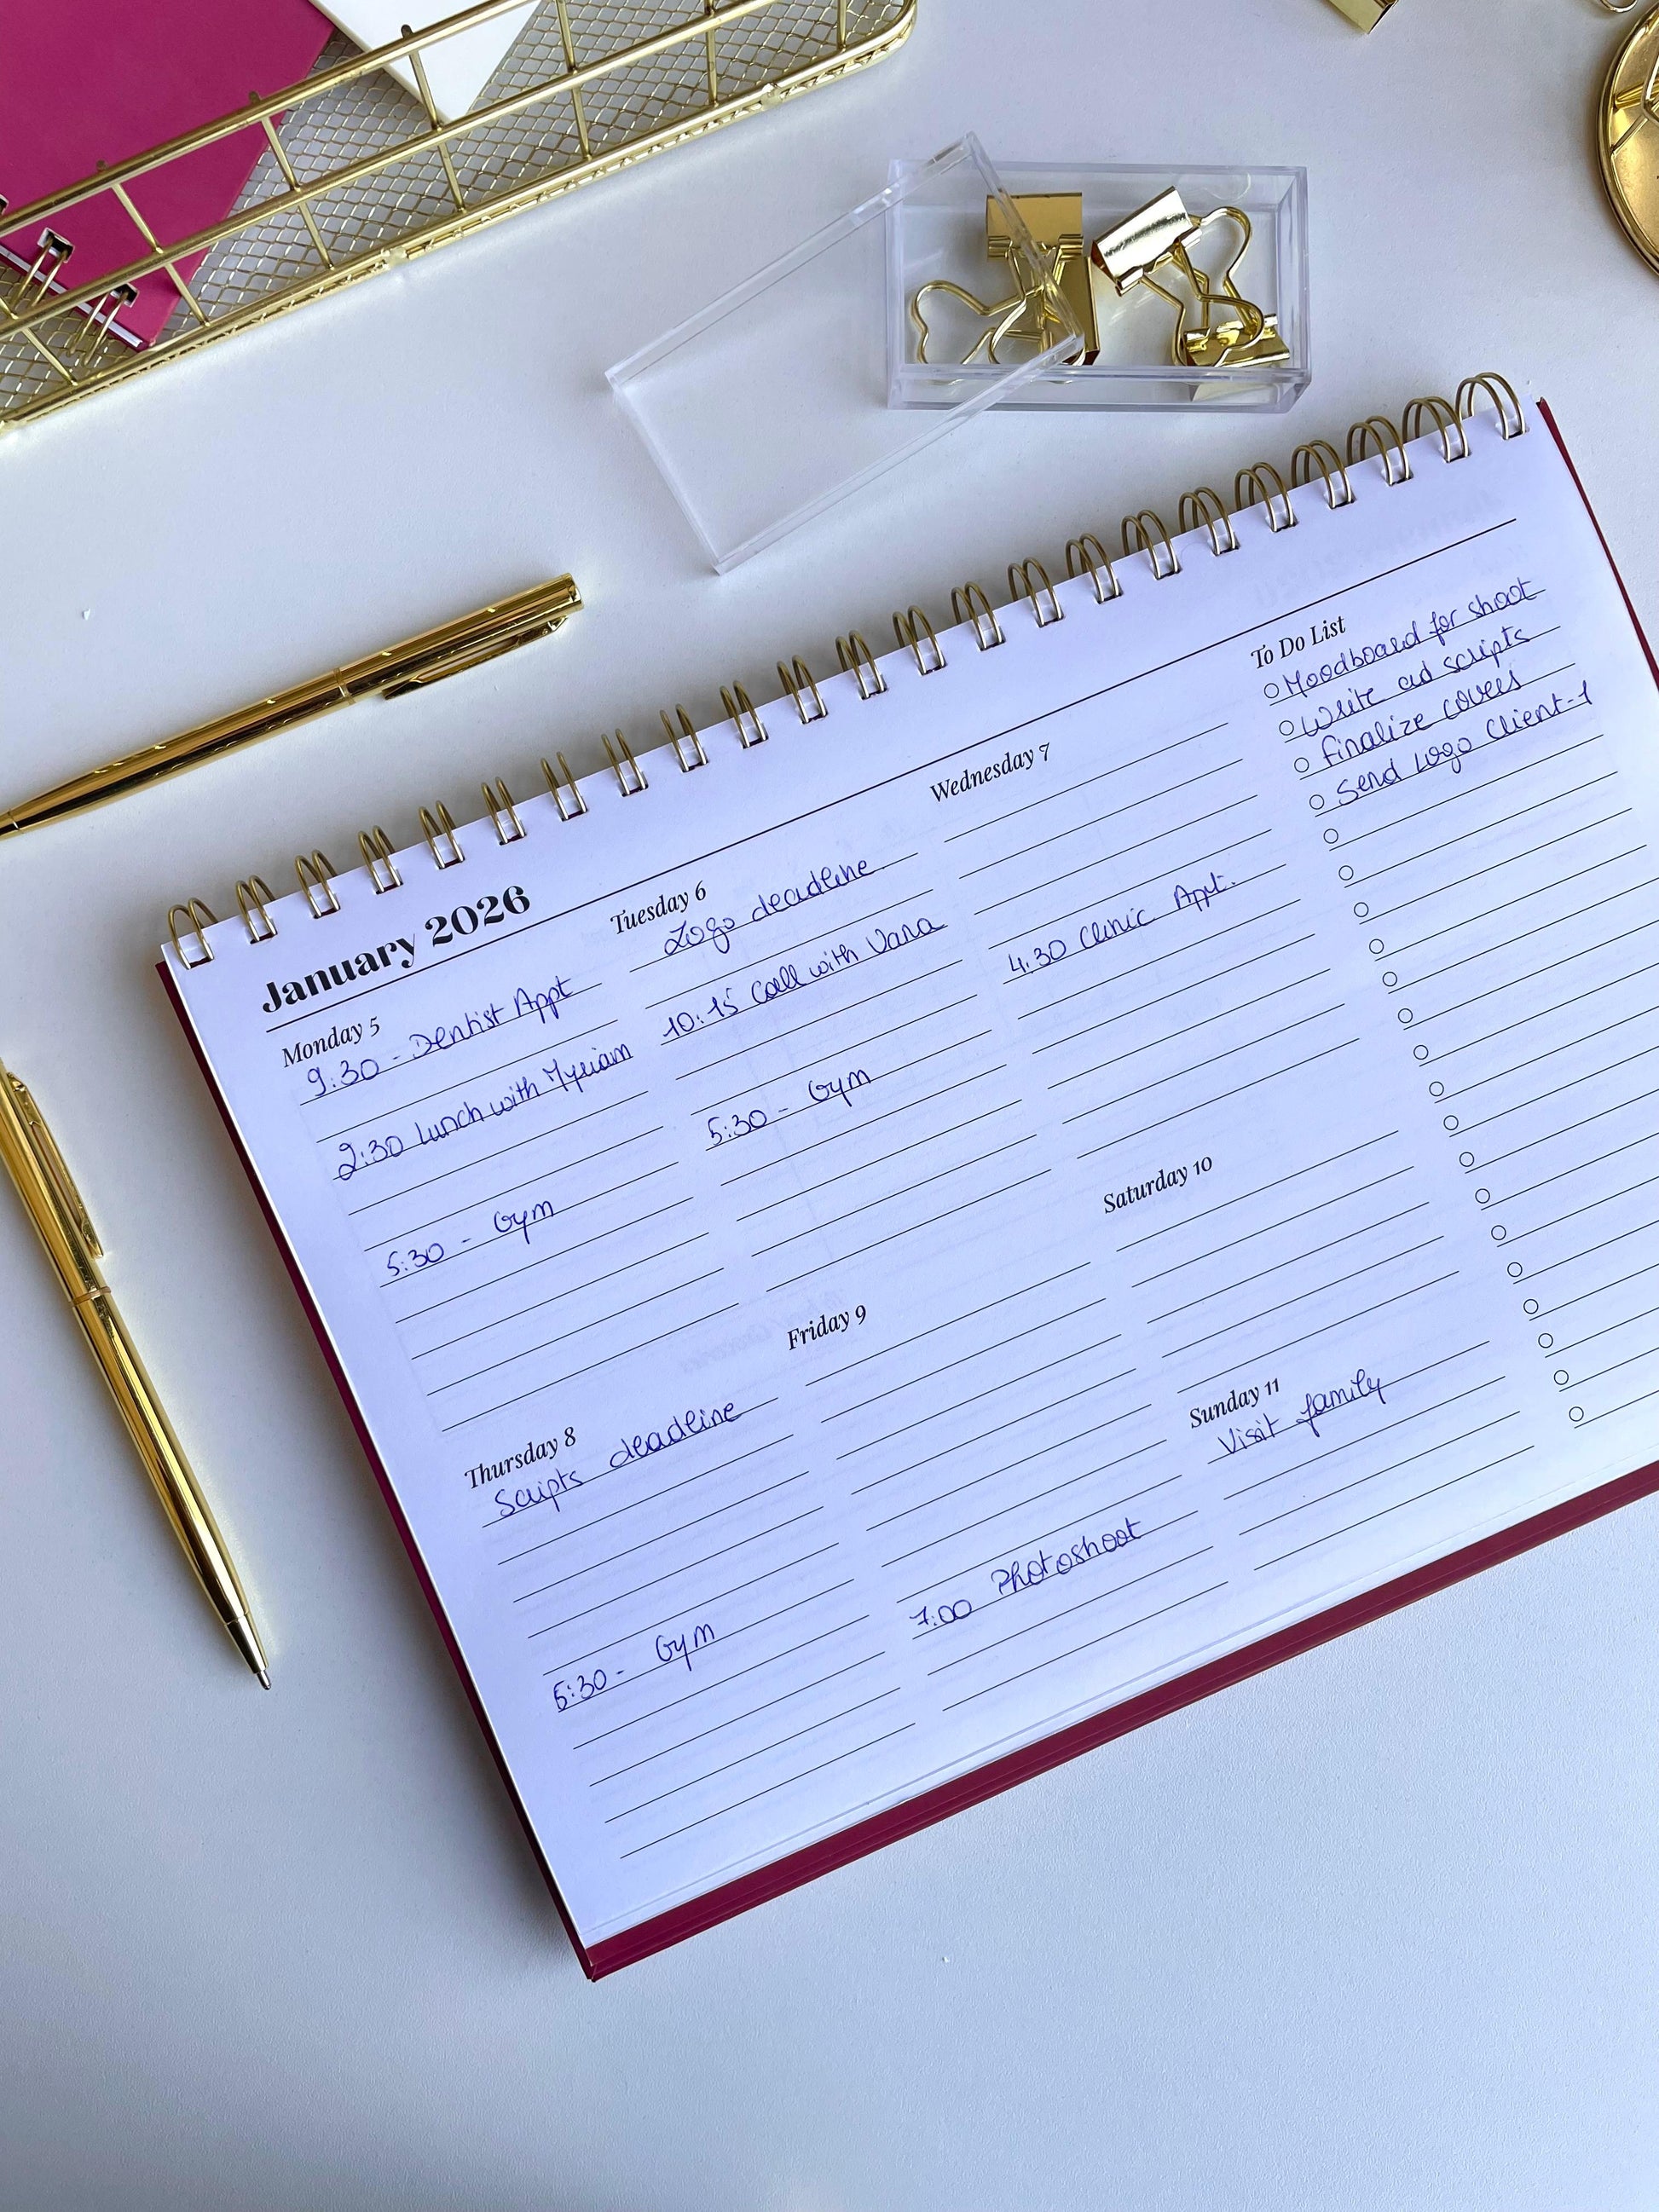 January 2026
Monday 5
9:30 - Dentist Appt
2:30 Lunch with Myriam
5:30 - Gym
Tuesday 6
Logo deadline
10:15 Call with Vana
5:30 - Gym
Wednesday 7
4:30 Clinic Appt.
Thursday 8
Scripts deadline
5:30 - Gym
Friday 9
7:00 Photoshoot
Saturday 10
Sunday 11
Visit family
To Do List
Moodboard for shoot
Write ad scripts
finalize covers
Send Logo Client-1